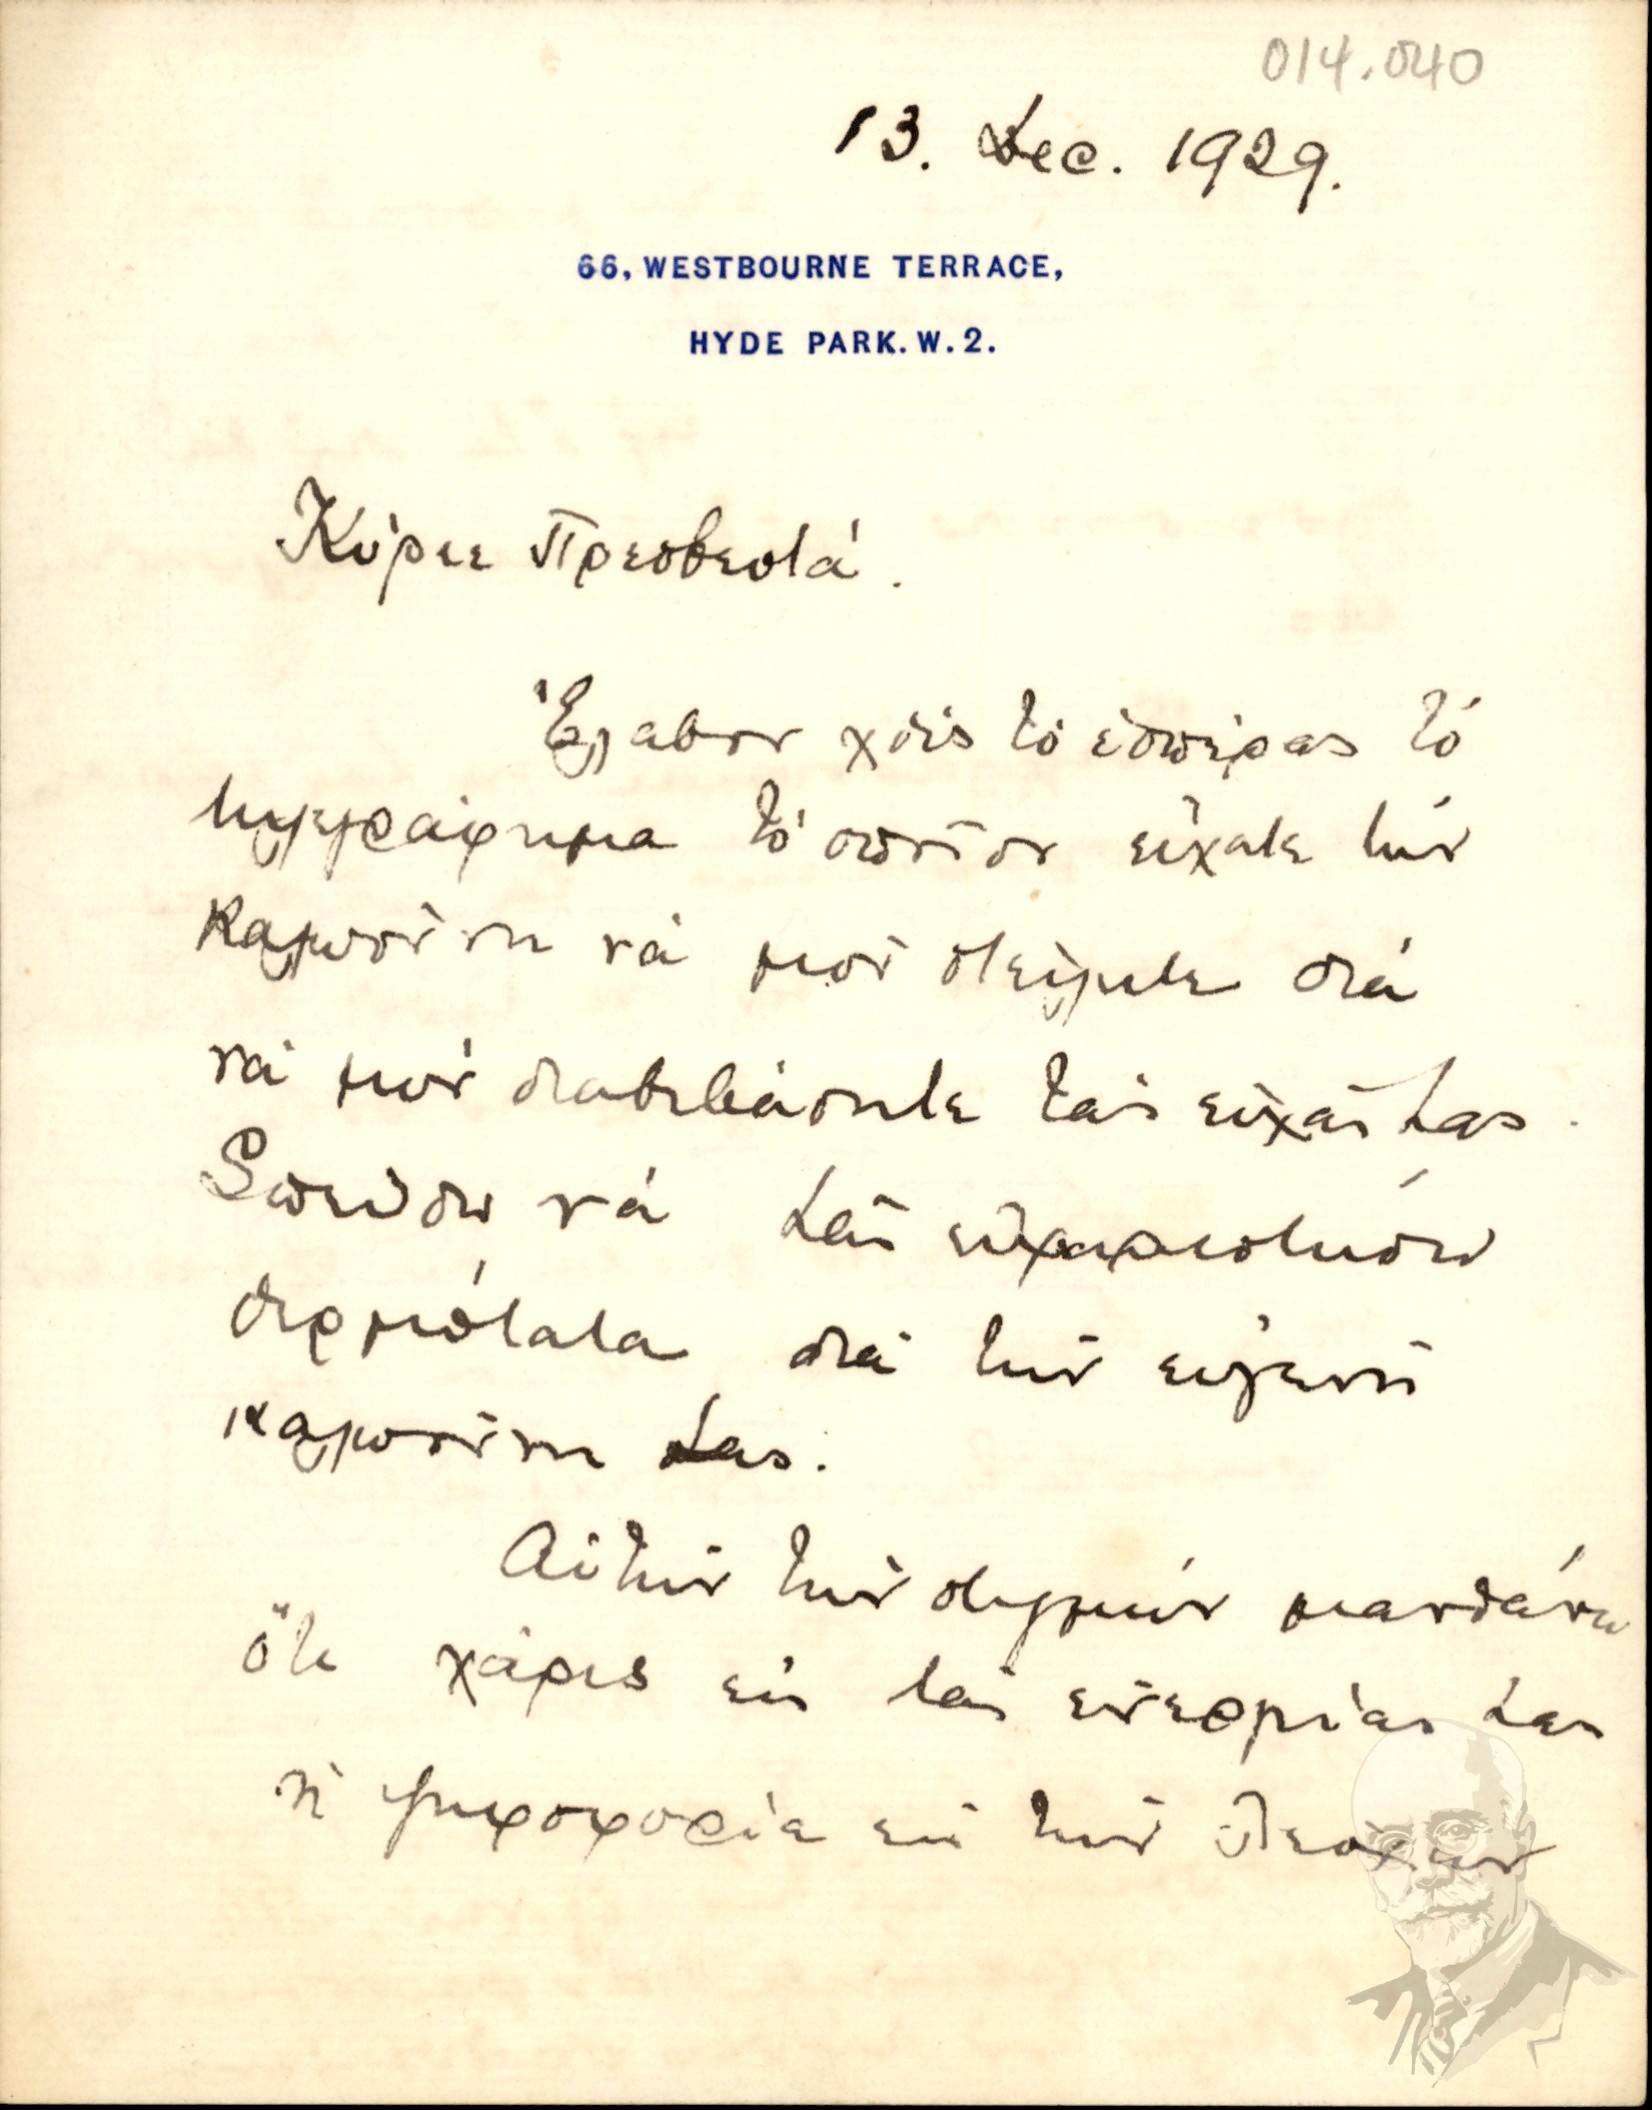 014.040
13. Dec. 1929.
66, WESTBOURNE TERRACE,
HYDE PARK. W. 2.
Κύριε Πρεσβευτά.
Ἔλαβον χθὲς τὸ ἑσπέρας τὸ
τηλεγράφημα τὸ ὁποῖον εἴχατε τὴν
καλωσύνη νὰ μοῦ στείλητε διὰ
νὰ μοῦ διαβιβάσητε τὰς εὐχάς Σας.
Σπεύδω νὰ Σᾶς εὐχαριστήσω
θερμότατα διὰ τὴν εὐγενῆ
καλωσύνη Σας.
Αὐτὴν τὴν στιγμὴν μανθάνω
ὅτι χάρις εἰς τὰς ἐνεργείας Σας
ἡ ψηφοφορία εἰς τὴν Λέσχην